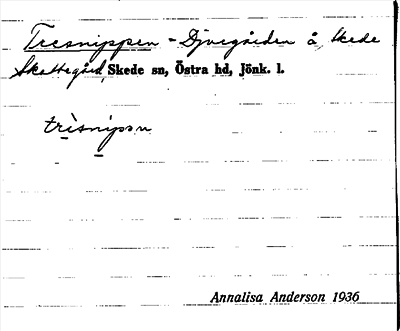 Tresnippen - Djuvgården å Skede
Skattegård, Skede sn, Östra hd, Jönk. l.
trìsnipsn
Annalisa Anderson 1936